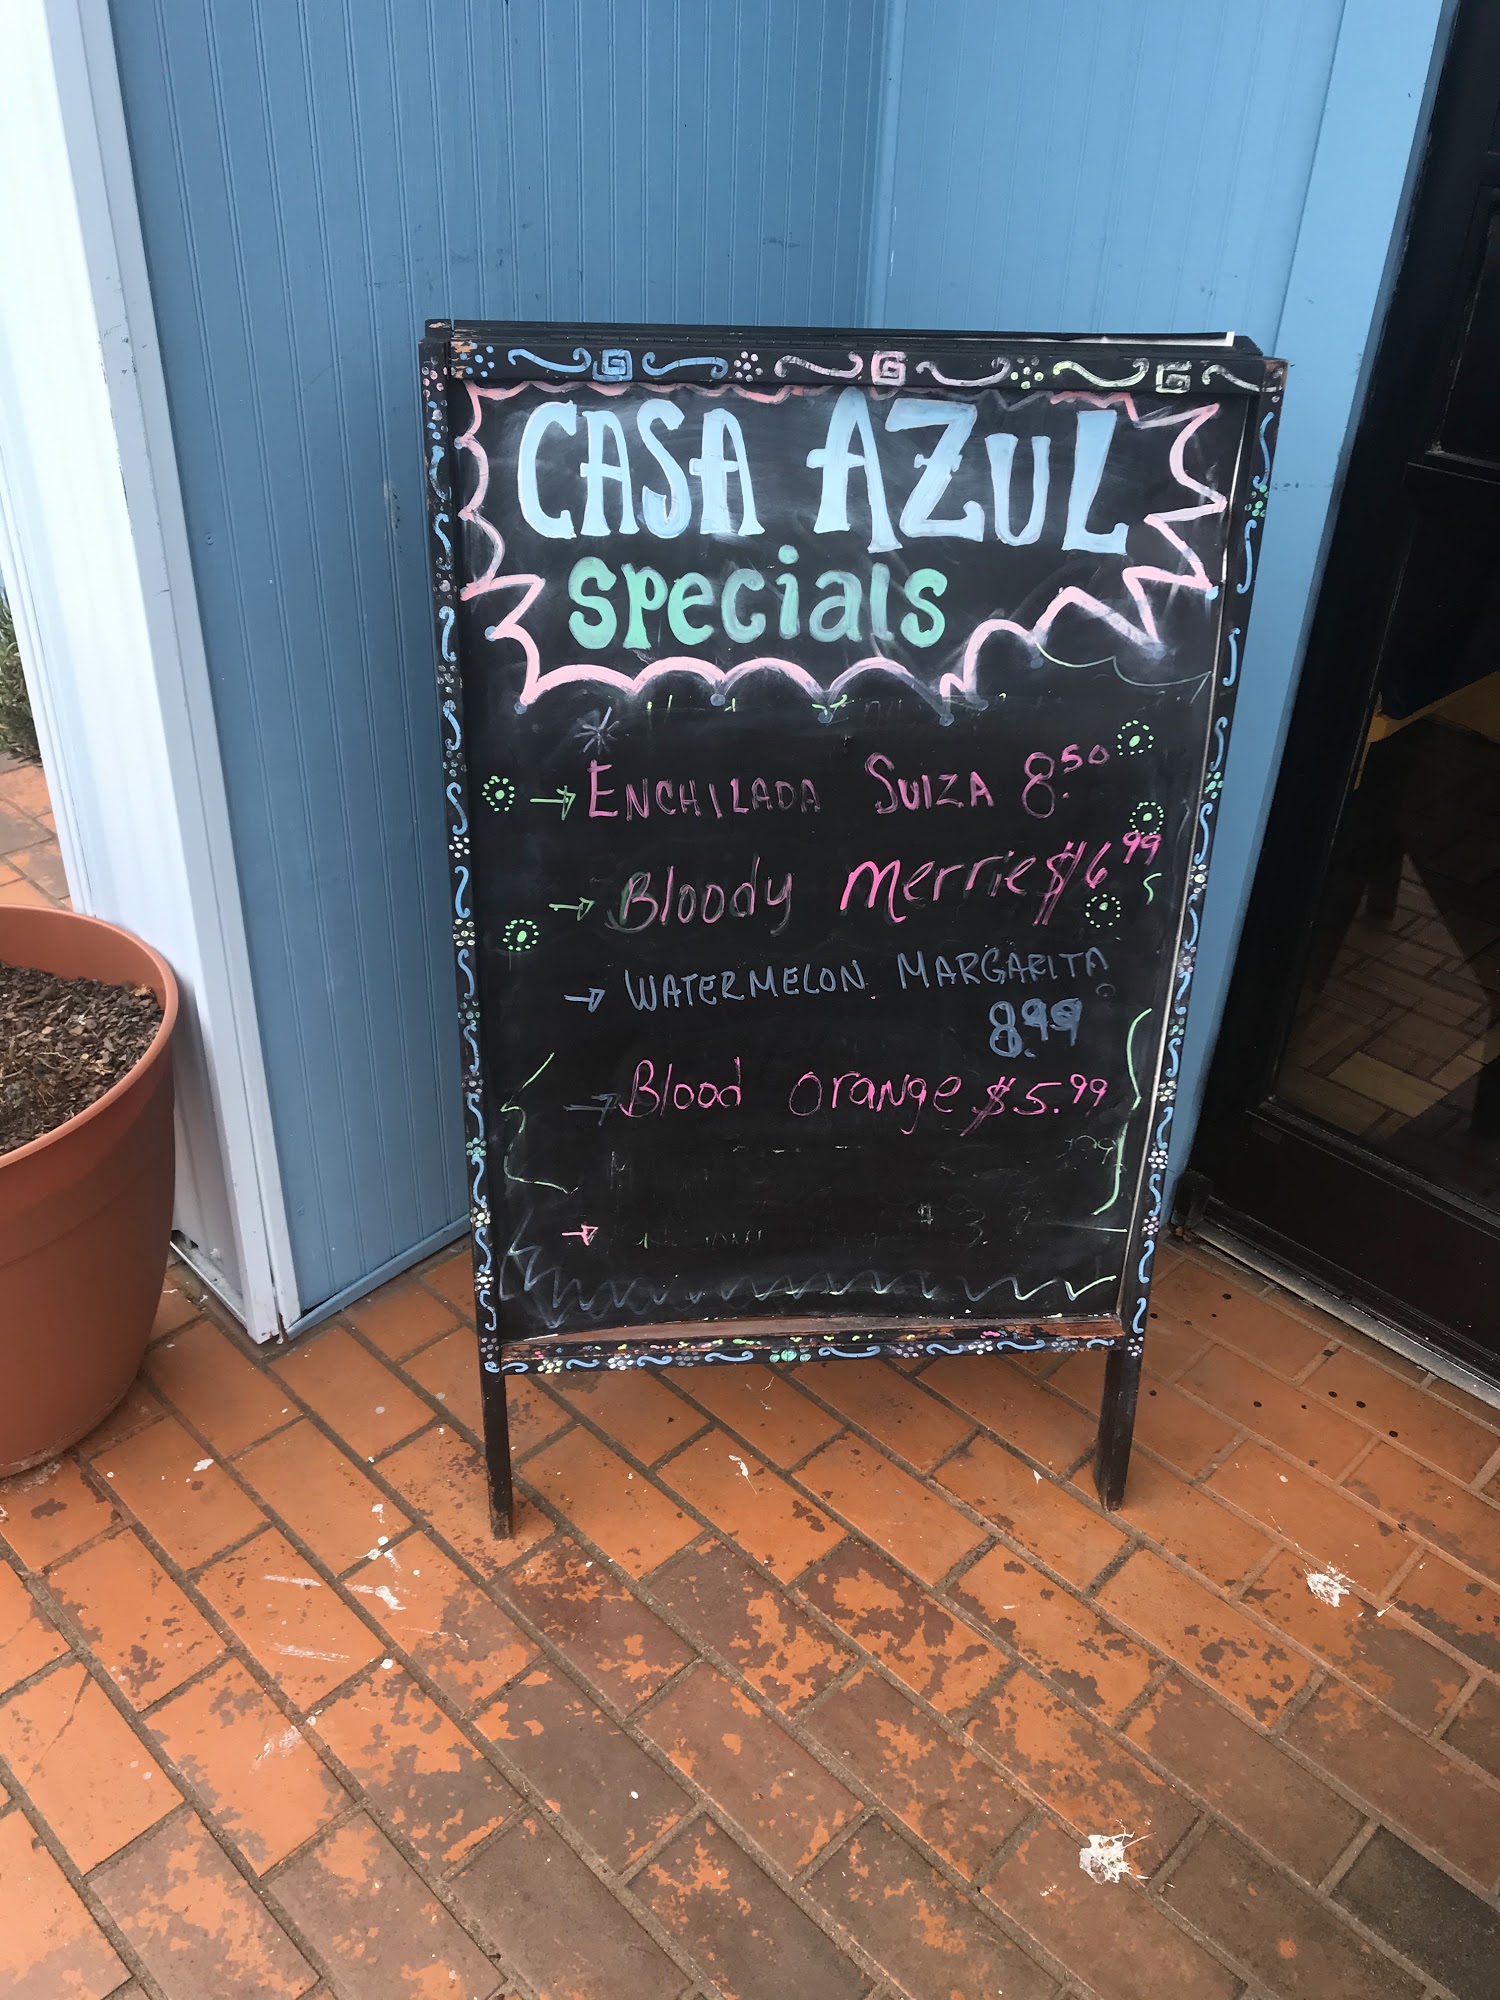 CASA AZUL
specials
ENCHILADA SUIZA 8.50
Bloody merrie $6.99
WATERMELON MARGARITA
8.99
Blood orange $5.99